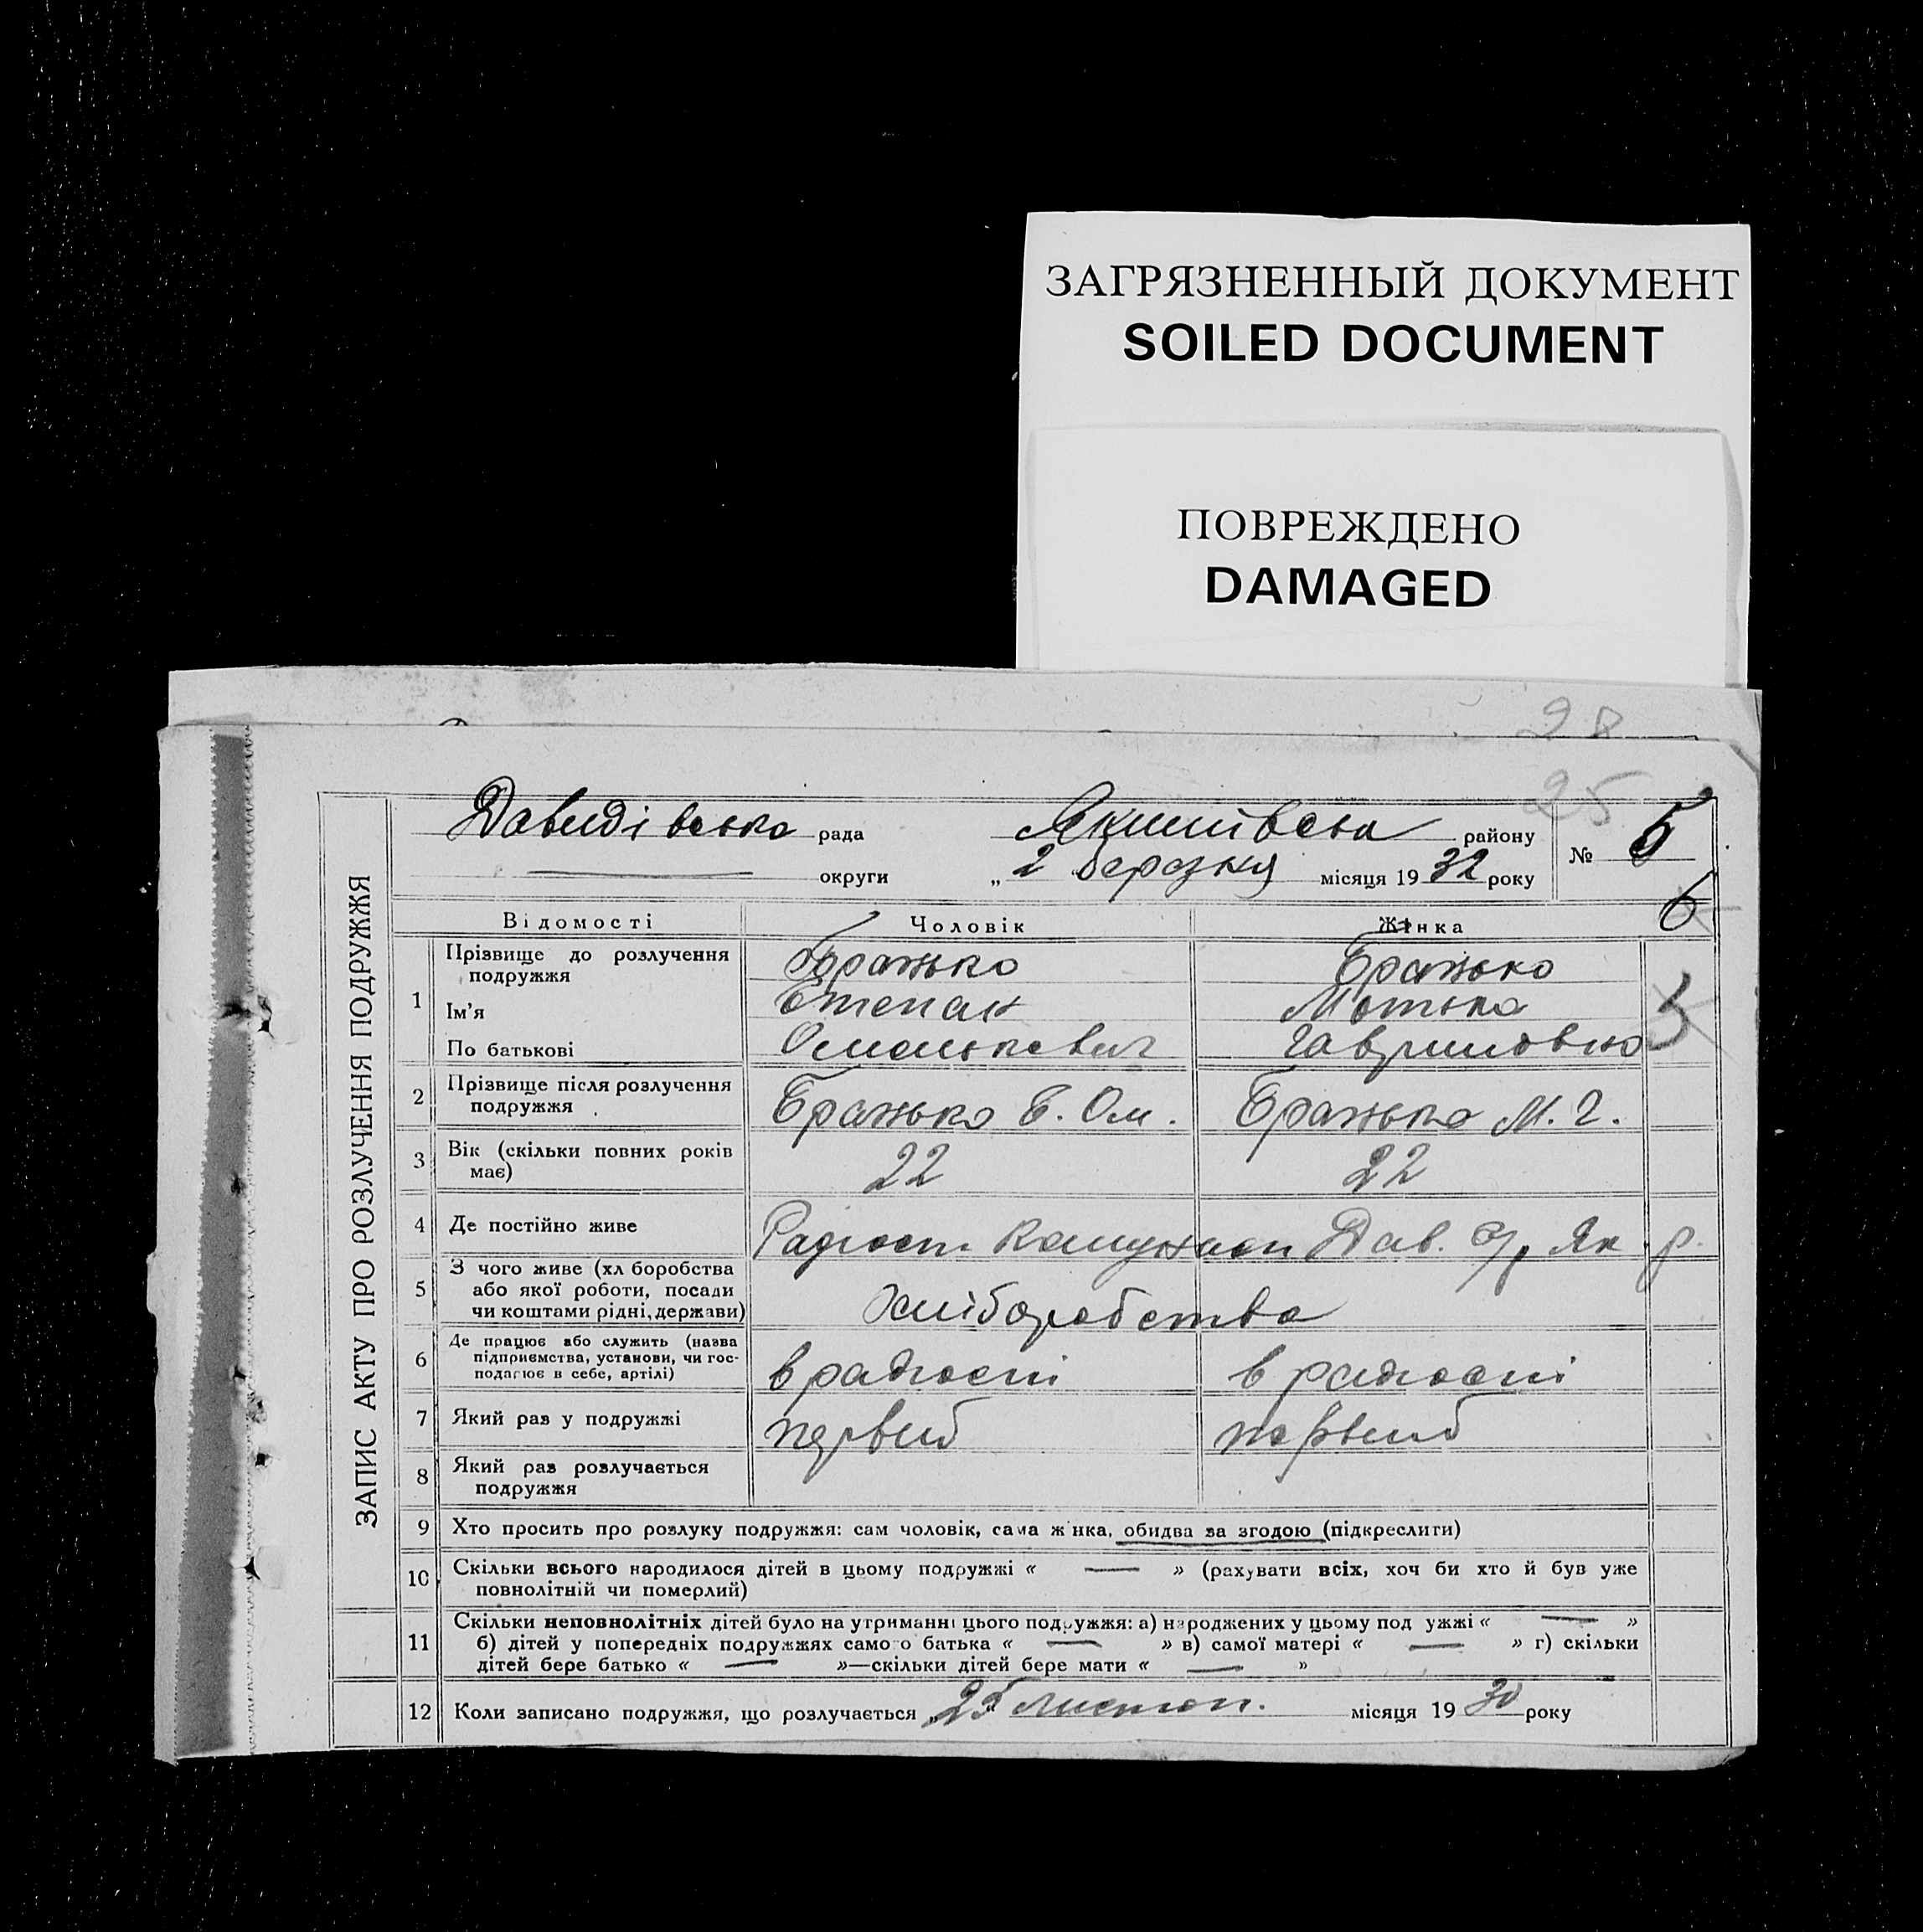 ЗАГРЯЗНЕННЫЙ ДОКУМЕНТ
SOILED DOCUMENT
ПОВРЕЖДЕНО
DAMAGED
28
25
ЗАПИС АКТУ ПРО РОЗЛУЧЕННЯ ПОДРУЖЖЯ
Давидівська рада Якимівська району
№ 5
округи „ 2 березня місяця 1932 року
6
Відомості Чоловік Жінка
1 Прізвище до розлучення подружжя Бражько Бражько
Ім'я Степан Мотька
По батькові Гавриловна
2 Прізвище після розлучення
подружжя Бражько С. Ом. Бражько М. Г.
3 Вік (скільки повних років
має) 22 22
4 Де постійно живе Радгосп Дав. с/р Як. р.
5 З чого живе (хл боробства
або якої роботи, посади
чи коштами рідні, держави) хліборобства
6 Де працює або служить (назва
підприємства, установи, чи гос-
подагює в себе, артілі) в радгоспі в радгоспі
7 Який раз у подружжі первий первий
8 Який раз розлучається
подружжя
9 Хто просить про розлуку подружжя: сам чоловік, сама ж нка, обидва за згодою (підкреслити)
10 Скільки всього народилося дітей в цьому подружжі « — » (рахувати всіх, хоч би хто й був уже
повнолітній чи померлий)
11 Скільки неповнолітніх дітей було на утриманні цього подружжя: а) народжених у цьому под ужжі « — »
б) дітей у попередніх подружжях самого батька « — » в) самої матері « — » г) скільки
дітей бере батько « — »—скільки дітей бере мати « — »
12 Коли записано подружжя, що розлучається „ 25 листоп. місяця 1930 року